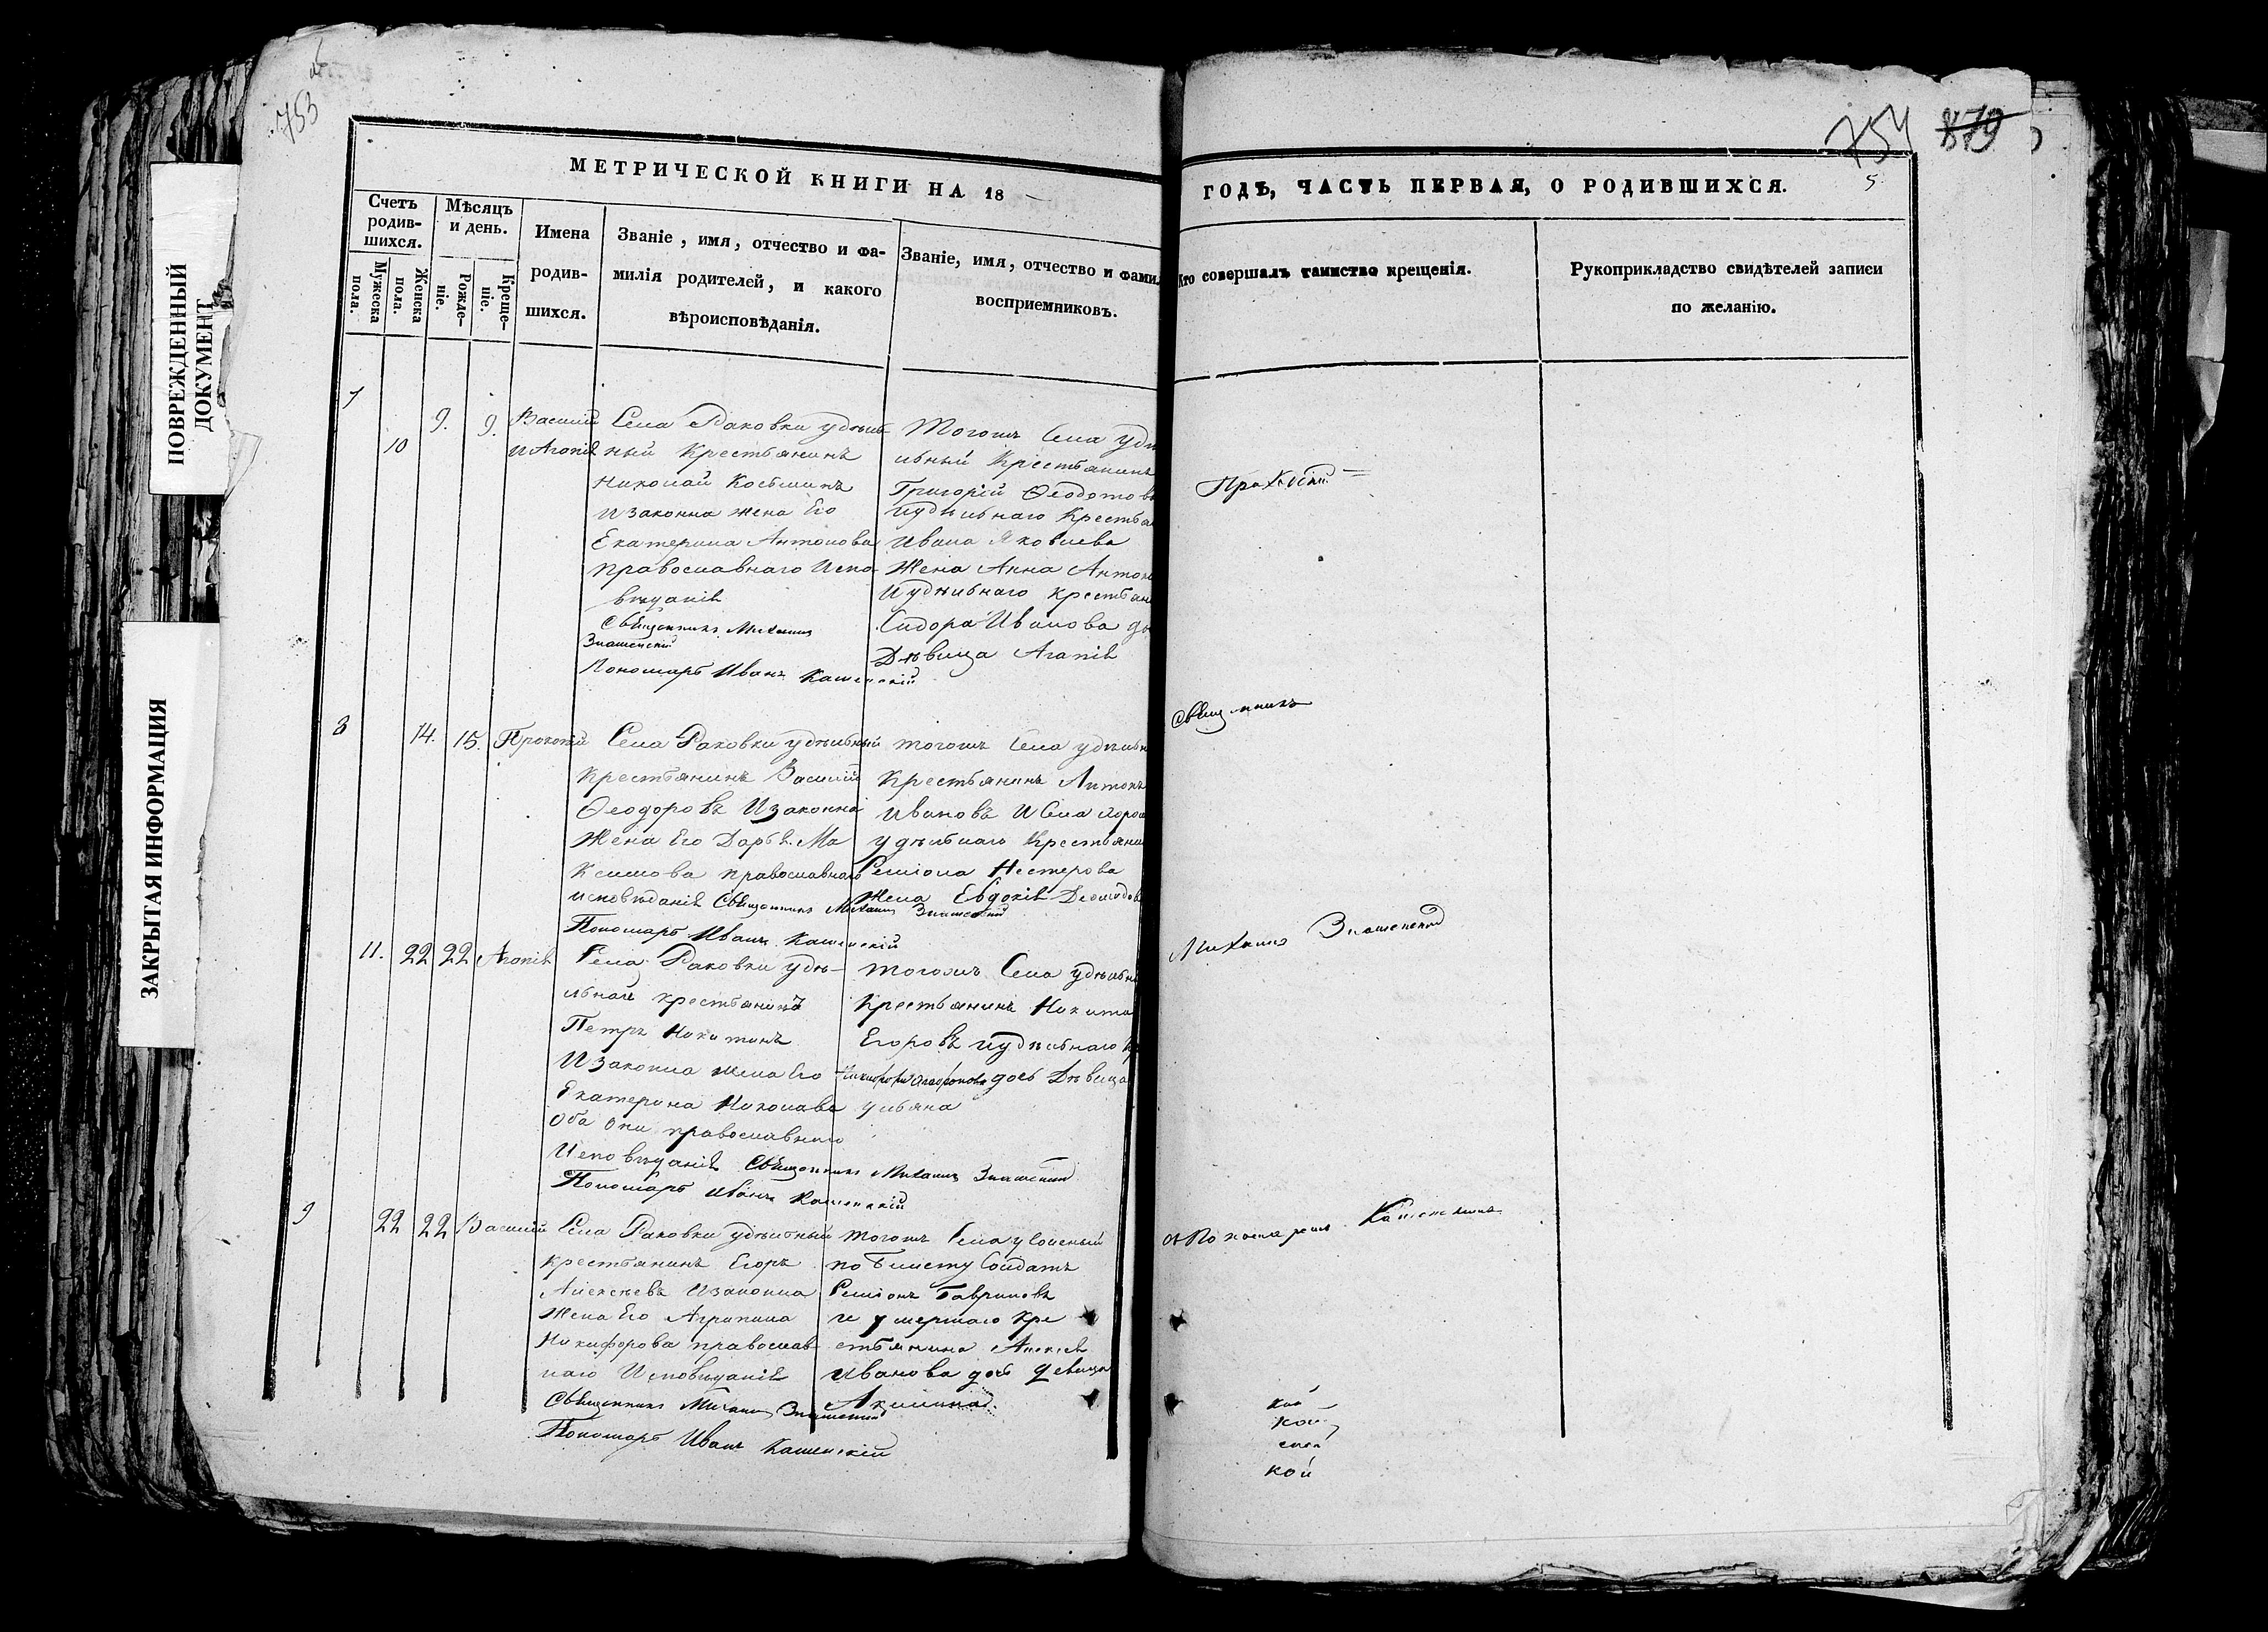 753
754 879
5
ПОВРЕЖДЕННЫЙ
ДОКУМЕНТ
ЗАКРЫТАЯ ИНФОРМАЦИЯ
МЕТРИЧЕСКОЙ КНИГИ НА 18
ГОДЪ, ЧАСТЬ ПЕРВАЯ, О РОДИВШИХСЯ.
Счетъ
родив-
шихся.
Мужеска
пола.
Женска
пола.
Мѣсяцъ
и день.
Рожде-
ніе.
Креще-
ніе.
Имена
родив-
шихся.
Званіе, имя, отчество и фа-
милія родителей, и какого
вѣроисповѣданія.
Званіе, имя, отчество и фами
восприемниковъ.
Кто совершалъ таинство крещенія.
Рукоприкладство свидѣтелей записи
по желанію.
7
10
9. 9.
Василій
и Агапія
Села Раковки удѣль-
ный Крестьянинъ
Николай Косьминъ
И законна жена Его
Екатерина Антонова
православнаго Испо-
вѣданія
Священникъ Михаилъ
Знаменскій
Пономарь Иванъ Каменскій
Тогожъ Села удѣ
льный Крестьянинъ
Григорій Ѳеодотовъ
Иудѣльнаго Крестья
Ивана Яковлева
Жена Анна Антон
Иудѣльнаго Крестьян
Сидора Иванова до
Дѣвица Агапія
8
14. 15. Прокопій
Села Раковки удѣльный
Крестьянинъ Василій
Ѳеодоровъ И законна
Жена Его Дарья Ма
ксимова православнаго
исповѣданія Священникъ Михаилъ Знаменскій
Пономарь Иванъ Каменскій
тогожъ Села удѣльн
Крестьянинъ Антонъ
Ивановъ И Села
удѣльнаго Крестьянин
Семіона Нестерова
Жена Евдокія
11. 22 22 Агапія
Села Раковки удѣ-
льный крестьянинъ
Петръ Никитинъ
И законна жена Его
Екатерина Николава
Оба они православнаго
Исповѣданія Священникъ Михаилъ Знаменскій
Пономарь Иванъ Каменскій
тогожъ Села удѣльн
Крестьянинъ Никита
Егоровъ Иудѣльнаго
дочь Дѣвица
Ульяна
9
22 22 Василій
Села Раковки удѣльный
крестьянинъ Егоръ
Алексѣевъ И законна
Жена Его Агрипина
Никифорова православ
наго Исповѣданія
Священникъ Михаилъ Знаменскій
Пономарь Иванъ Каменскій
тогожъ Села уволеный
по билету Солдатъ
Семіонъ Гавриловъ
и умершаго Кре
стьянина Алексѣя
Иванова дочь Девица
Акилина
Священникъ
Михаилъ Знаменский
съ Пономаремъ Каменскимъ
кой
кой
кой